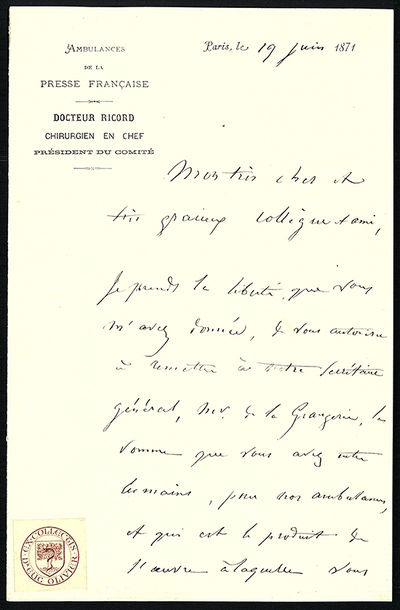 AMBULANCES
DE LA
PRESSE FRANÇAISE
DOCTEUR RICORD
CHIRURGIEN EN CHEF
PRÉSIDENT DU COMITÉ
Paris, le 19 juin 1871
Mon très cher et
très gracieux collègue et ami,
Je prends la liberté, que vous
m'avez donnée, de vous autoriser
à remettre à notre Secrétaire
général, Mr. de la Grangerie, la
somme que vous avez entre
les mains, pour nos ambulances,
et qui est le produit de
l'œuvre à laquelle vous
EX COLLECTIS
ERIC OLIVIER